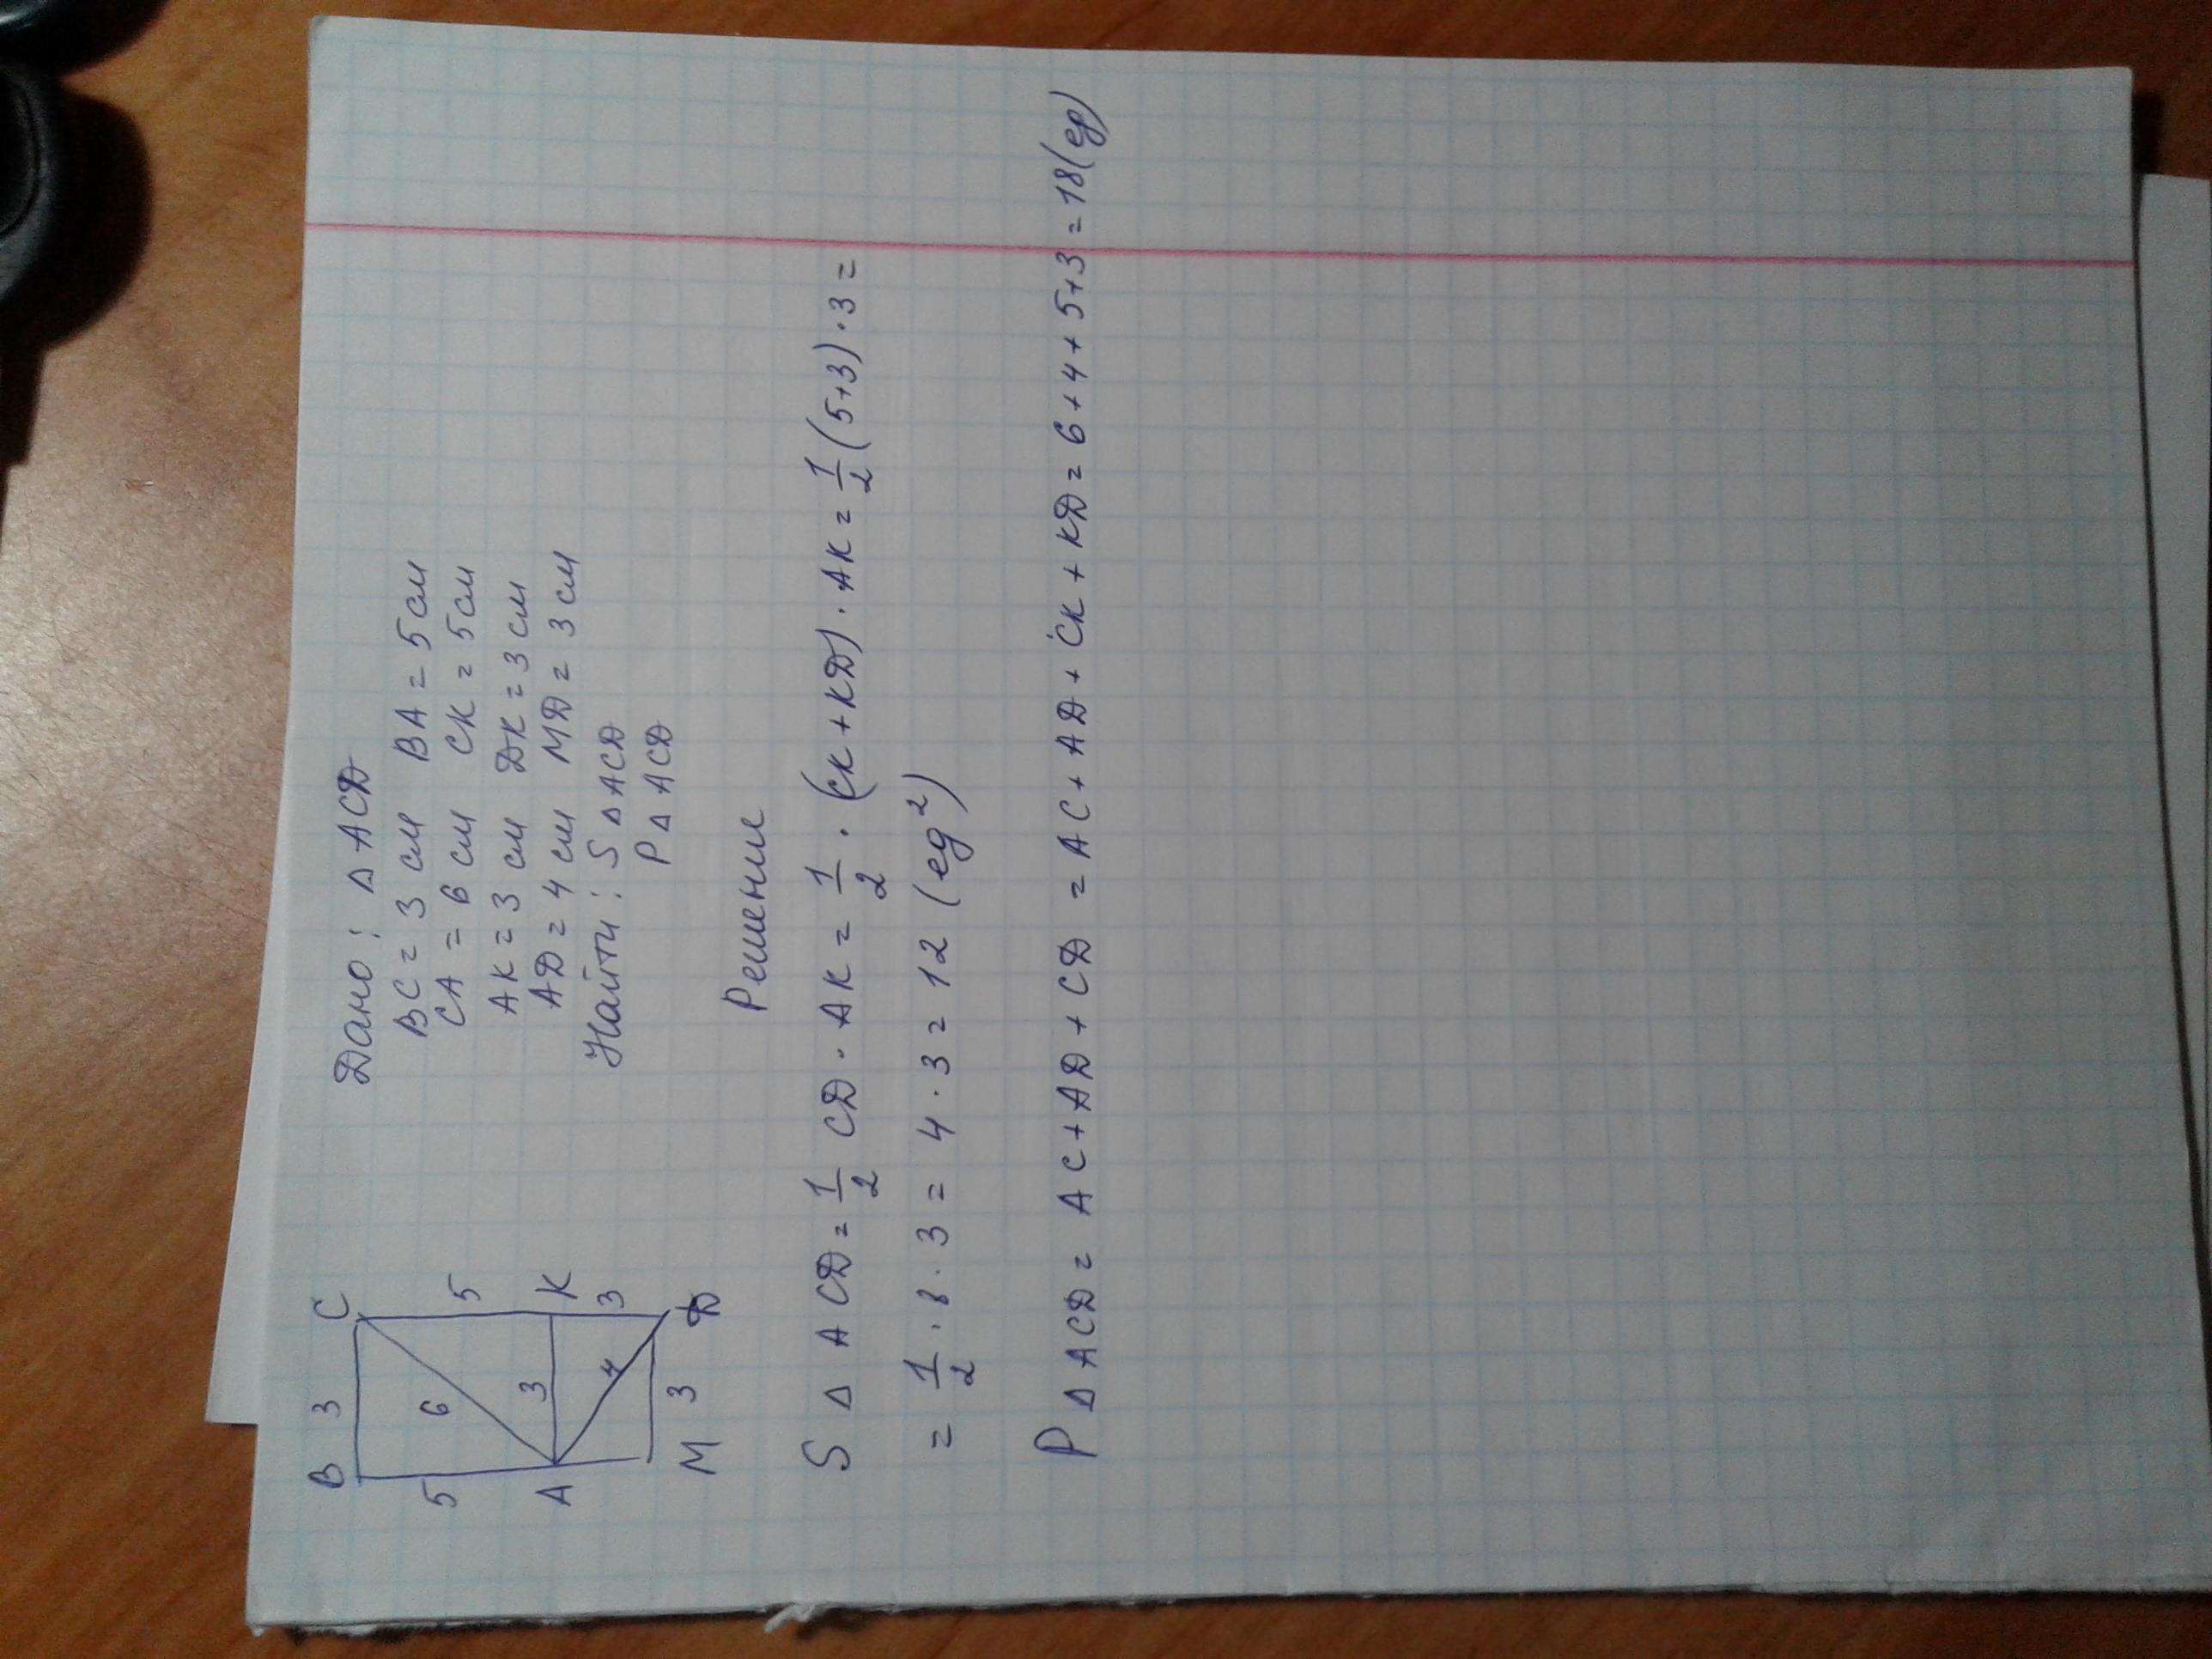 B 3 C
5 6 5
A 3 K
4 3
M 3 D
Дано: △ ACD
BC = 3 см BA = 5 см
CA = 6 см CK = 5 см
AK = 3 см DK = 3 см
AD = 4 см MD = 3 см
Найти: S △ ACD
P △ ACD
Решение
S △ ACD = 1/2 CD · AK = 1/2 · (CK + KD) · AK = 1/2 (5+3) · 3 =
= 1/2 · 8 · 3 = 4 · 3 = 12 (ед²)
P △ ACD = AC + AD + CD = AC + AD + CK + KD = 6 + 4 + 5 + 3 = 18 (ед)